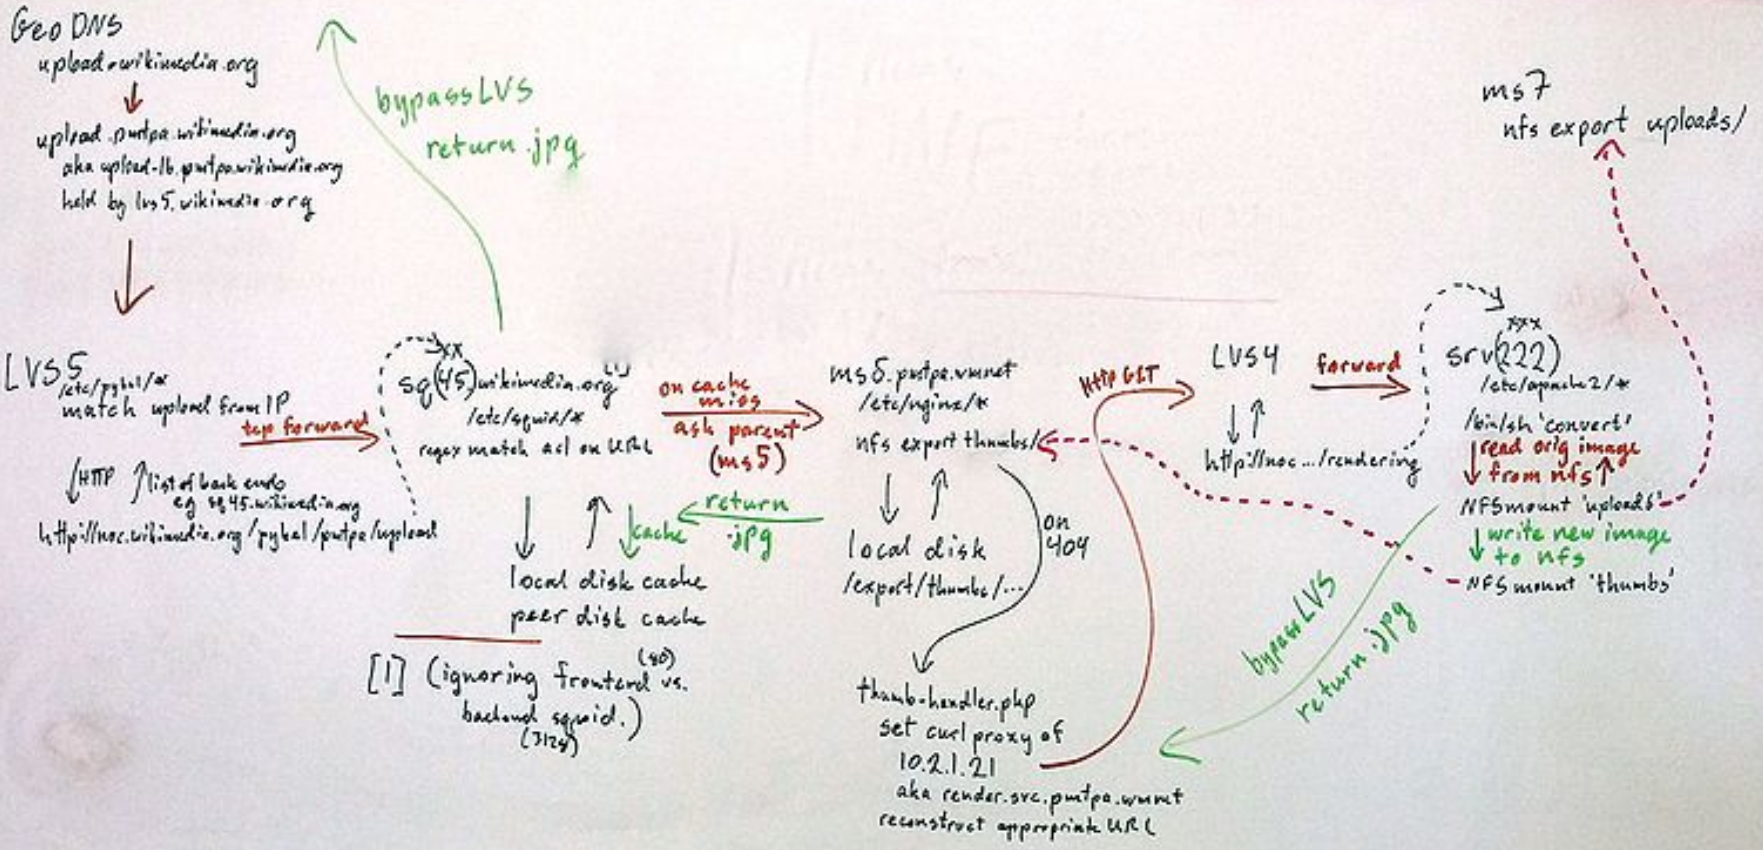 Geo DNS
upload.wikimedia.org
upload.pmtpa.wikimedia.org
aka upload-lb.pmtpa.wikimedia.org
held by lvs5.wikimedia.org
bypass LVS
return .jpg
ms7
nfs export uploads/
LVS5
/etc/pybal/*
match upload from IP
tcp forward
HTTP
list of back ends
eg sq45.wikimedia.org
http://noc.wikimedia.org/pybal/pmtpa/upload
xx
sq(45).wikimedia.org [1]
/etc/squid/*
regex match acl on URL
cache
local disk cache
peer disk cache
[1] (ignoring frontend (80) vs.
backend squid.)
(3128)
on cache
miss
ask parent
(ms5)
return
.jpg
ms5.pmtpa.wmnet
/etc/nginx/*
nfs export thumbs/
local disk
/export/thumbs/...
on
404
thumb-handler.php
set curl proxy of
10.2.1.21
aka render.svc.pmtpa.wmnet
reconstruct appropriate URL
http GET
LVS4
http://noc.../rendering
forward
xxx
srv(222)
/etc/apache2/*
/bin/sh 'convert'
read orig image
from nfs
NFS mount 'uploads'
write new image
to nfs
NFS mount 'thumbs'
bypass LVS
return .jpg